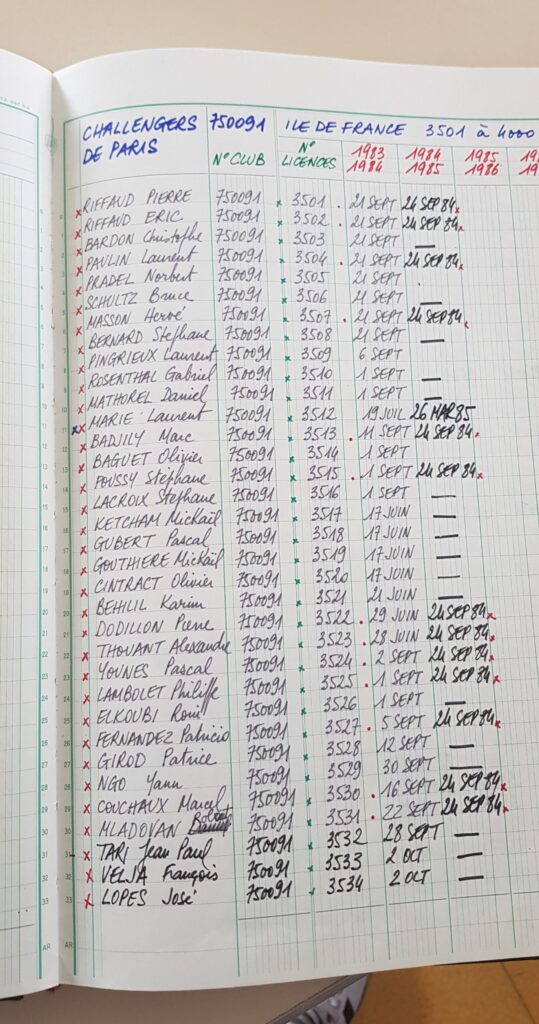 CHALLENGERS 750091 ILE DE FRANCE 3501 à 4000
DE PARIS N° CLUB N° LICENCES 1983 1984 1984 1985 1985 1986
RIFFAUD PIERRE 750091 x 3501 . 21 SEPT 24 SEP 84 x
RIFFAUD ERIC 750091 x 3502 . 21 SEPT 24 SEP 84 x
BARDON Christophe 750091 x 3503 21 SEPT —
PAULIN Laurent 750091 x 3504 . 21 SEPT 24 SEP 84 x
PRADEL Norbert 750091 x 3505 21 SEPT
SCHULTZ Bruce 750091 x 3506 21 SEPT —
MASSON Hervé 750091 x 3507 . 21 SEPT 24 SEP 84 x
BERNARD Stephane 750091 x 3508 21 SEPT —
PINGRIEUX Laurent 750091 x 3509 6 SEPT
ROSENTHAL Gabriel 750091 x 3510 1 SEPT —
MATHOREL Daniel 750091 x 3511 1 SEPT —
MARIE Laurent 750091 x 3512 19 JUIL 26 MAR 85
BADJILY Marc 750091 x 3513 . 11 SEPT 24 SEP 84 x
BAGUET Olivier 750091 x 3514 1 SEPT —
POUSSY Stephane 750091 x 3515 . 1 SEPT 24 SEP 84 x
LACROIX Stephane 750091 x 3516 1 SEPT —
KETCHAM Mickail 750091 x 3517 17 JUIN —
GUBERT Pascal 750091 x 3518 17 JUIN —
GOUTHIERE Mickail 750091 x 3519 17 JUIN —
CINTRACT Olivier 750091 x 3520 17 JUIN —
BEHILIL Karim 750091 x 3521 21 JUIN —
DODILLON Pierre 750091 x 3522 . 29 JUIN 24 SEP 84 x
THOUANT Alexandre 750091 x 3523 . 28 JUIN 24 SEP 84 x
YOUNES Pascal 750091 x 3524 . 2 SEPT 24 SEP 84 x
LAMBOLET Philippe 750091 x 3525 . 1 SEPT 24 SEP 84 x
ELKOUBI 750091 x 3526 1 SEPT —
FERNANDEZ Patricio 750091 x 3527 . 5 SEPT 24 SEP 84 x
GIROD Patrice 750091 x 3528 12 SEPT —
NGO Yann 750091 x 3529 30 SEPT —
COUCHAUX Marcel 750091 x 3530 . 16 SEPT 24 SEP 84 x
MLADOVAN Robert 750091 x 3531 . 22 SEPT 24 SEP 84 x
TARI Jean Paul 750091 x 3532 28 SEPT —
VELJA François 750091 x 3533 2 OCT —
LOPES José 750091 x 3534 2 OCT —